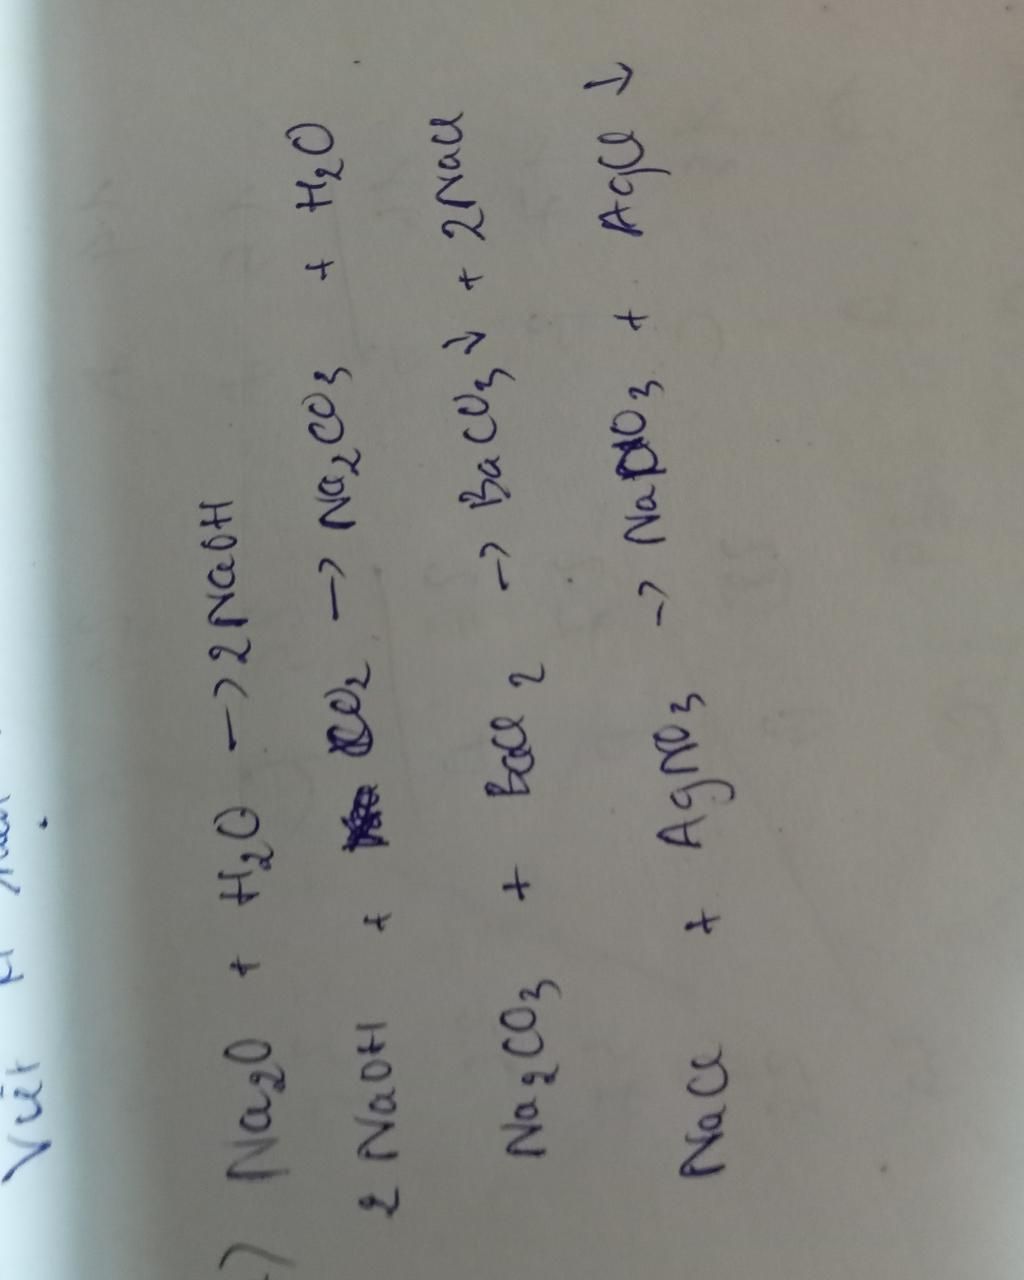 Viết
Na₂O + H₂O → 2NaOH
2 NaOH + CO₂ → Na₂CO₃ + H₂O
Na₂CO₃ + BaCl₂ → BaCO₃↓ + 2NaCl
NaCl + AgNO₃ → NaNO₃ + AgCl ↓